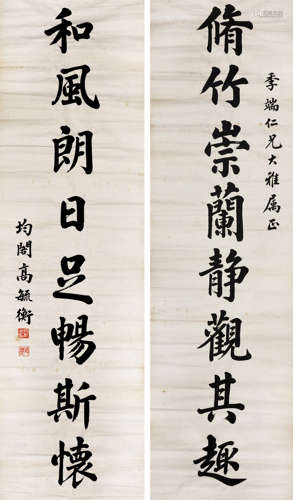 季端仁兄大雅属正
脩竹崇蘭静觀其趣
和風朗日足暢斯懷
均閣高毓衡